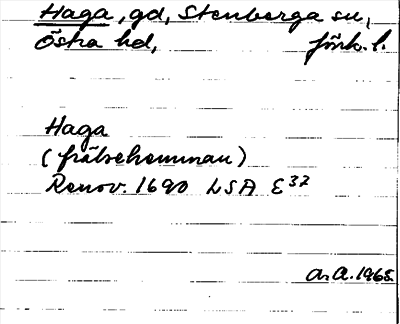 Haga, gd, Stenberga sn,
Östra hd, Jönk. l.
Haga
(frälsehemman)
Renov. 1690 LSA E 37
A. A. 1965.